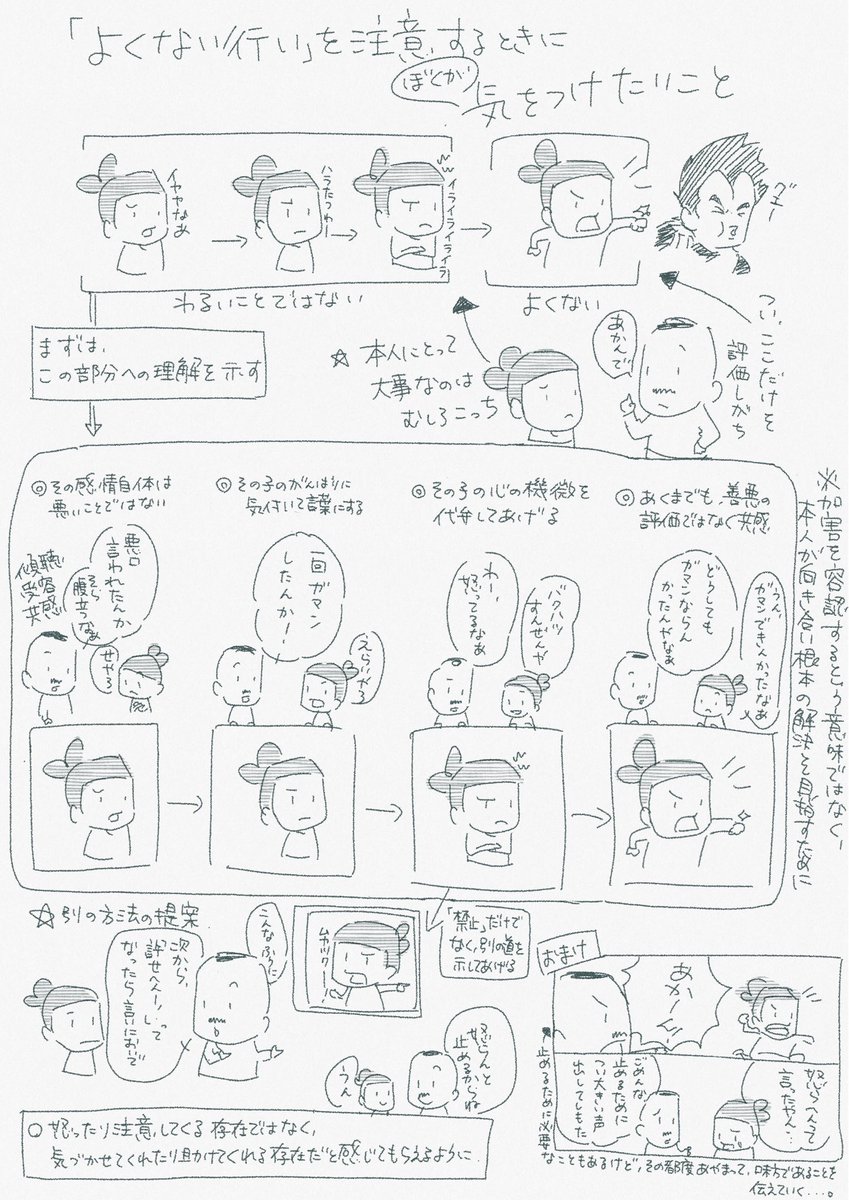 「よくない行い」を注意するときに
ぼくが
気をつけたいこと
イヤやなあ
ハラたつわー
イライライライラ
グエー
わるいことではない
よくない
つい、ここだけを
評価しがち
あかんで
まずは、
この部分への理解を示す
☆ 本人にとって
大事なのは
むしろこっち
※加害を容認するという意味ではなく、
本人が向き合い根本の解決を目指すために
◎その感情自体は
悪いことではない
傾聴
受容
共感
悪口
言われたんか
そら
腹立つなあ
せやろ
◎その子のがんばりに
気付いて言葉にする
一回ガマン
したんか!
えらいやろ
◎その子の心の機微を
代弁してあげる
わー、
怒ってるなあ
バクハツ
すんぜんや
◎あくまでも、善悪の
評価ではなく共感
どうしても
ガマンならん
かったんやなあ
うん、
ガマンできんかったなあ
☆別の方法の提案
次から、
許せへんー!って
なったら言いにおいで
こんなふうに
ムカツクー!
「禁止」だけで
なく、別の道を
示してあげる
怒らんと
止めるからね
うん
○怒ったり注意してくる存在ではなく、
気づかせてくれたり助けてくれる存在だと感じてもらえるように
おまけ
あかーん!
怒らへんって
言ったやん…
ごめんな、
止めるために
つい大きい声
出してしもた
★止めるために必要
なこともあるけど、その都度あやまって、味方であることを
伝えていく…。